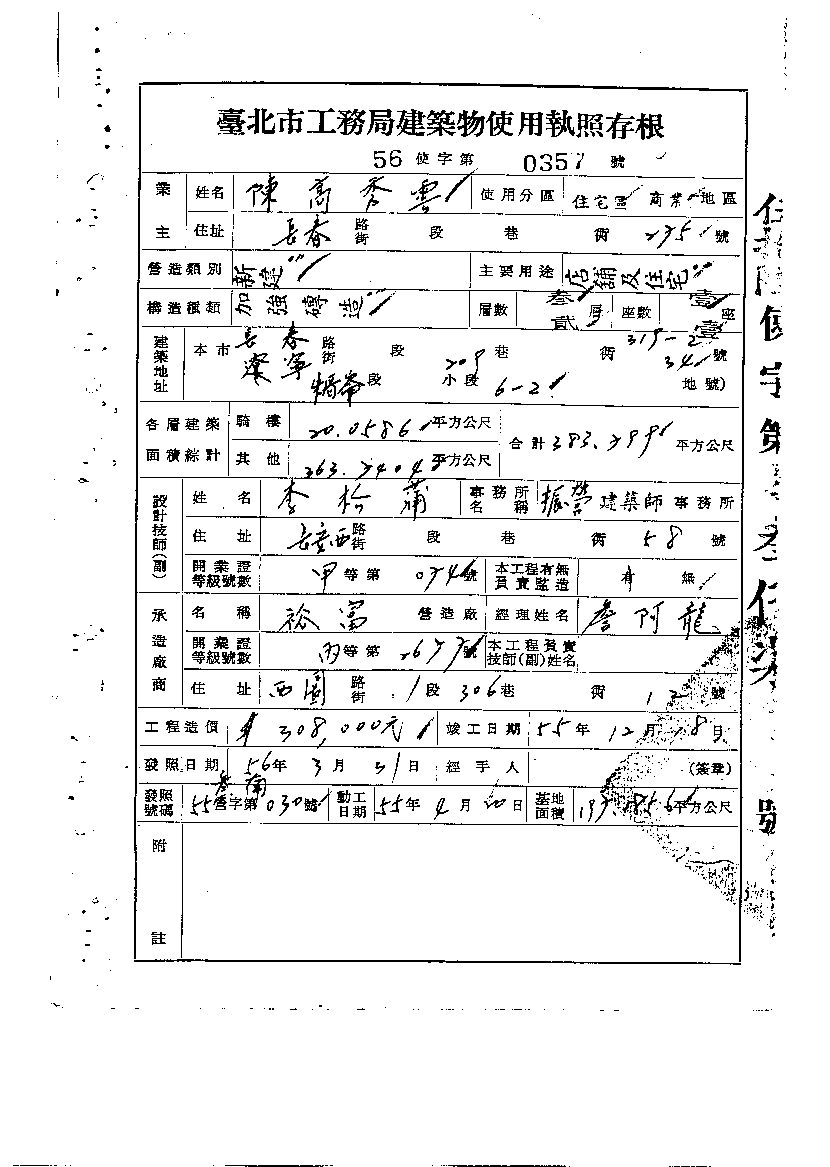 臺北市工務局建築物使用執照存根
56 使字第 0357 號
業主 姓名 陳高秀雲 使用分區 住宅區 商業 地區
住址 長春 路街 段 巷 衖 號
營造類別 新建 主要用途 店舖及住宅
構造種類 加強磚造 層數 叁貳 座數 壹壹 座
建築地址 本市 長春 路街 段 209 巷 衖 319-2 34 號
段 小段 6-2 地號)
各層建築面積綜計 騎樓 20.0586 平方公尺 合計 平方公尺
其他 平方公尺
設計技師(副) 姓名 李 事務所名稱 振營 建築師事務所
住址 長安西 路街 段 巷 衖 58 號
開業證等級號數 甲 等第 號 本工程有無負責監造 有 無
承造廠商 名稱 裕富 營造廠 經理姓名 詹阿龍
開業證等級號數 丙 等第 號 本工程負責技師(副)姓名
住址 西園 路街 1 段 306 巷 衖 12 號
工程造價 308,000元 竣工日期 55年 12月 日
發照日期 56年 3月 日 經手人 (簽章)
發照號碼 55 營字第 030 號 動工日期 55年 4月 日 基地面積 平方公尺
附註